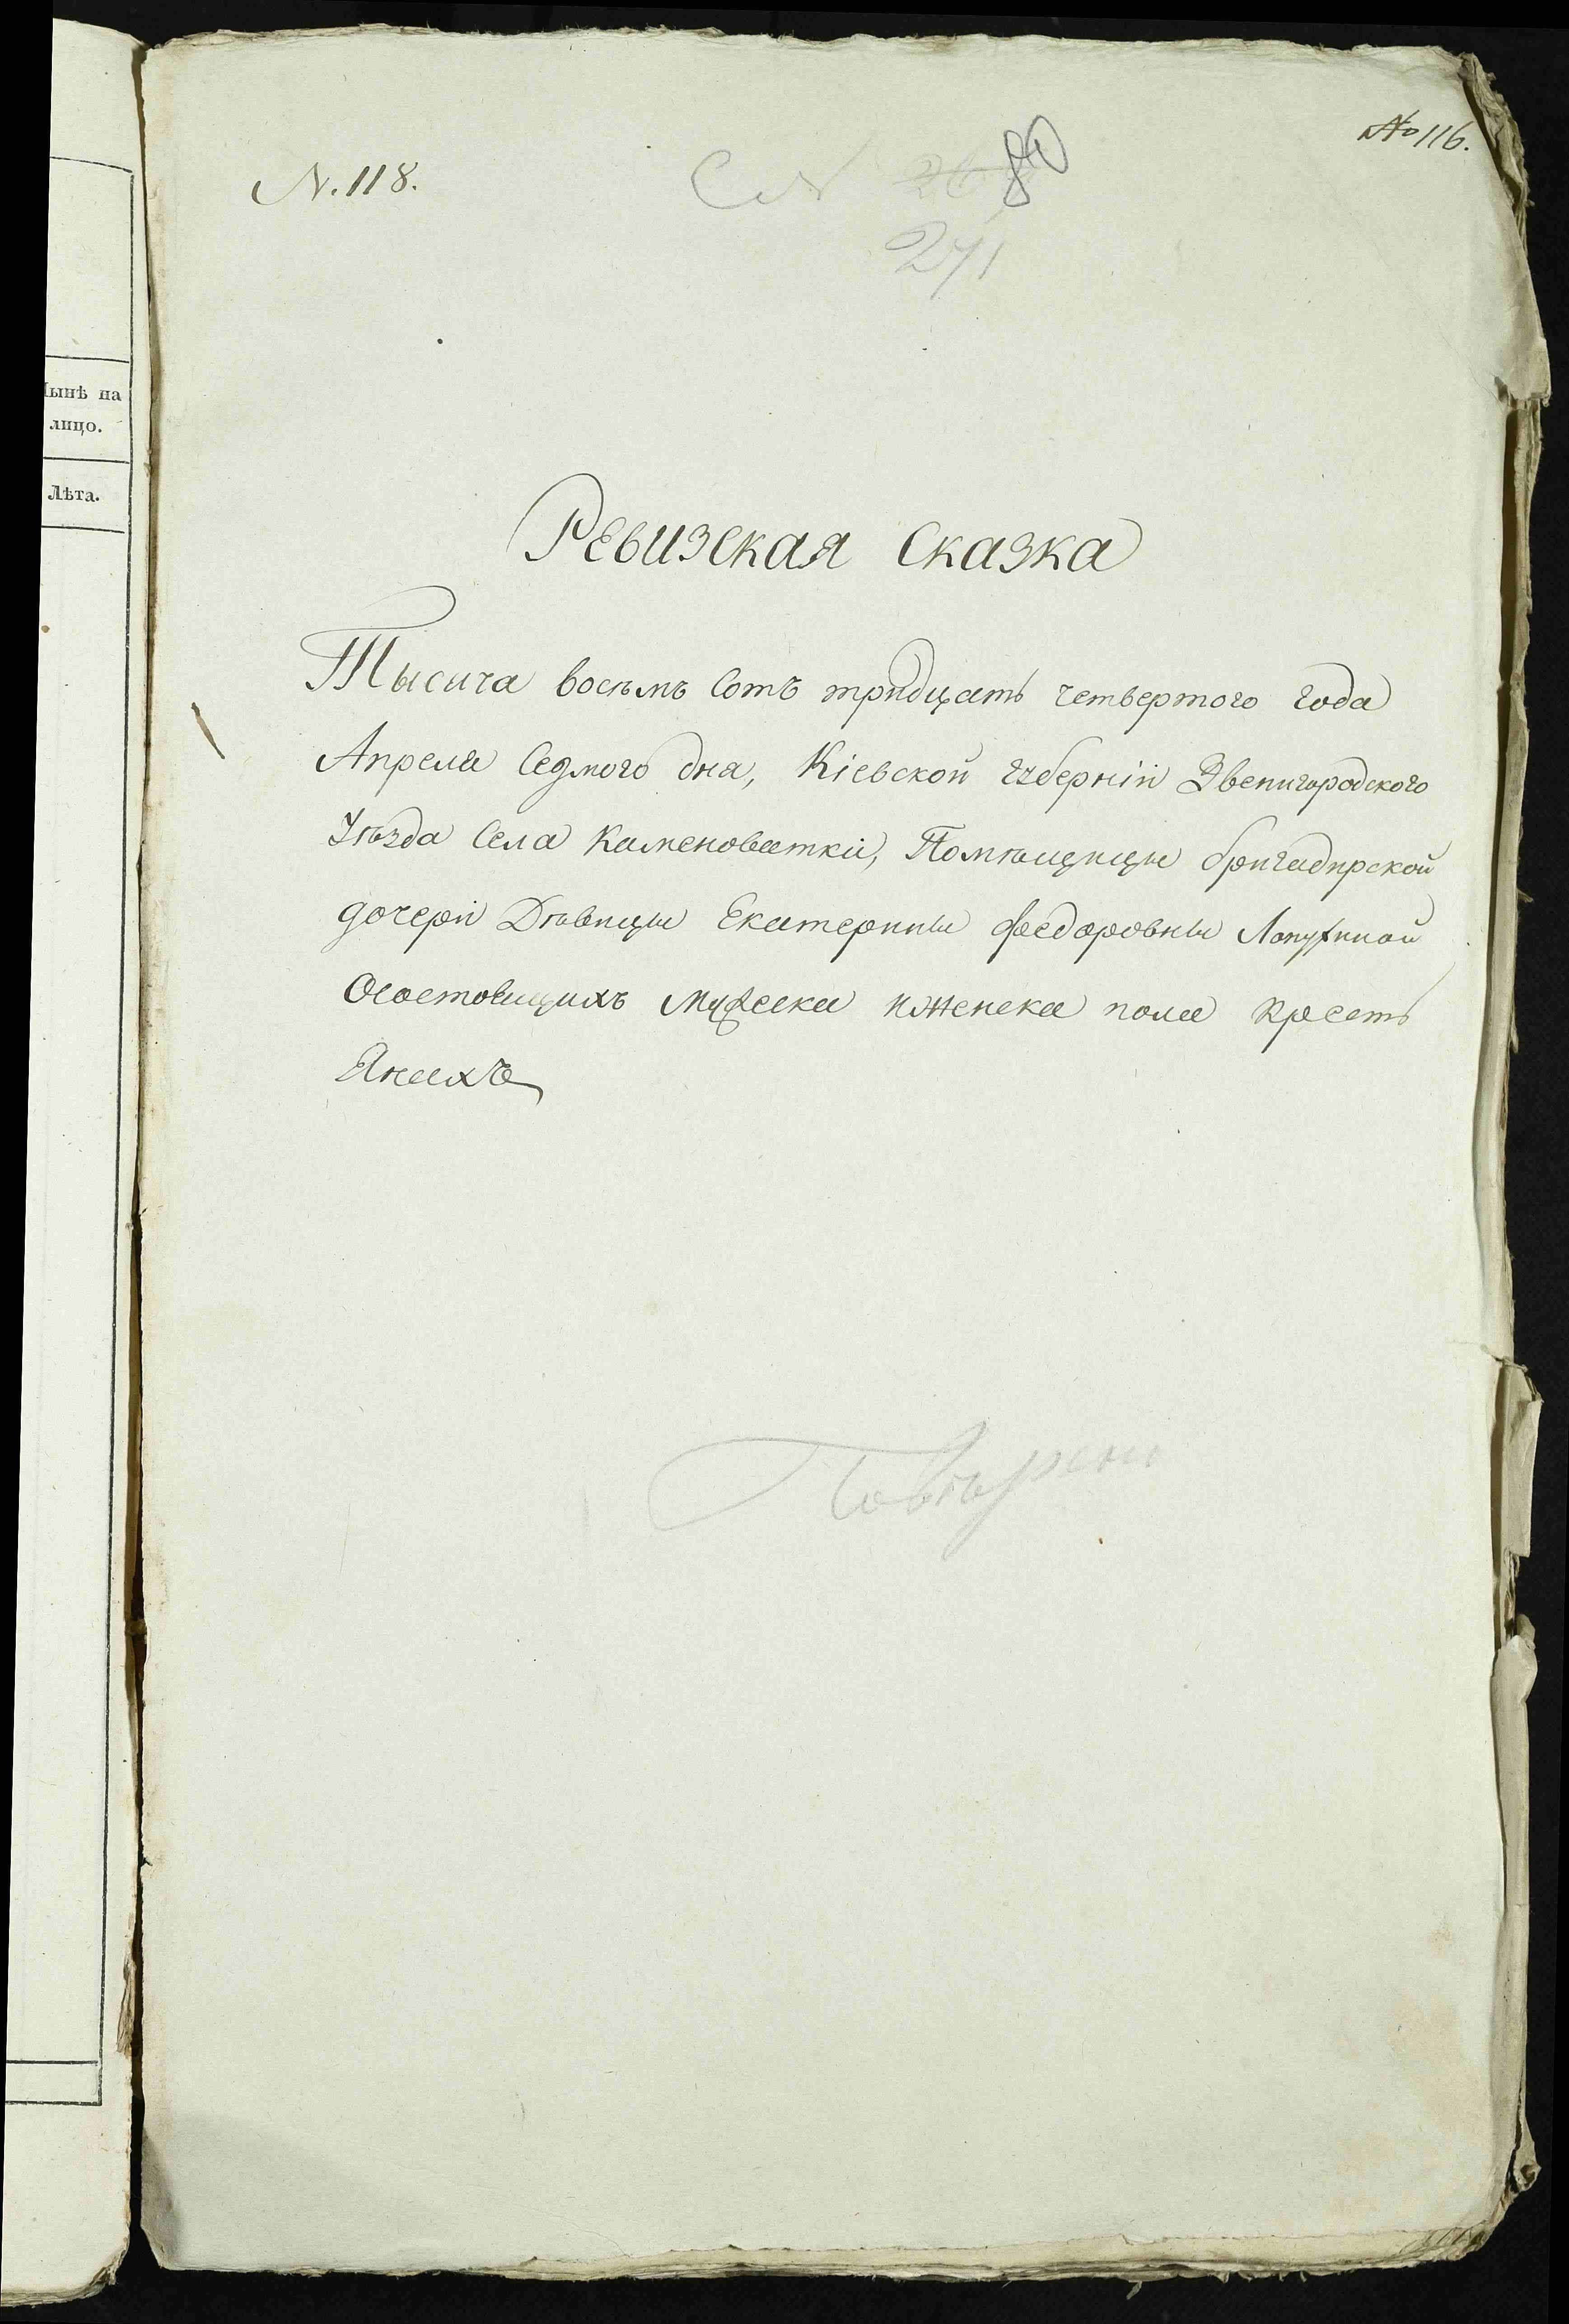 Нынѣ на
лицо.
Лѣта.
№ 116.
N. 118.
80
271
Ревизская Сказка
Тысяча восѣмъ Сотъ тридцать четвертого года
Апреля Седмого дня, Кіевской губерніи Звенигородского
Уѣзда Села Каменоватки, Помѣщицы бригадирской
дочери Дѣвицы Екатерины Федоровны Лопухиной
Осостоящихъ мужеска иженска пола крестъ
Янахъ
Повѣрено